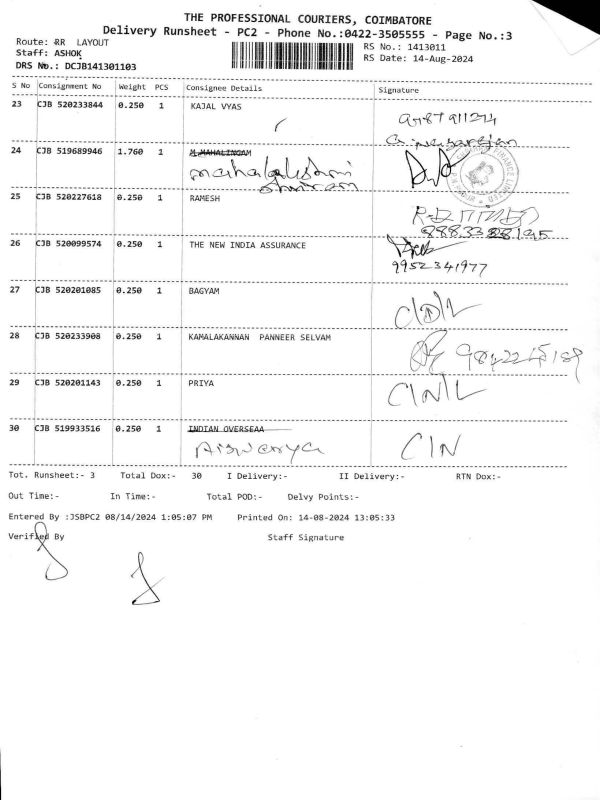 THE PROFESSIONAL COURIERS, COIMBATORE
Delivery Runsheet - PC2 - Phone No.:0422-3505555 - Page No.:3
Route: RR LAYOUT
RS No.: 1413011
Staff: ASHOK
RS Date: 14-Aug-2024
DRS No.: DCJB141301103
S No Consignment No Weight PCS Consignee Details Signature
23 CJB 520233844 0.250 1 KAJAL VYAS
24 CJB 519689946 1.760 1 M.MAHALINGAM
mahalakshmi
25 CJB 520227618 0.250 1 RAMESH
26 CJB 520099574 0.250 1 THE NEW INDIA ASSURANCE
9952341977
27 CJB 520201085 0.250 1 BAGYAM
28 CJB 520233908 0.250 1 KAMALAKANNAN PANNEER SELVAM
29 CJB 520201143 0.250 1 PRIYA
30 CJB 519933516 0.250 1 INDIAN OVERSEAA
Aiswarya
Tot. Runsheet:- 3 Total Dox:- 30 I Delivery:- II Delivery:- RTN Dox:-
Out Time:- In Time:- Total POD:- Delvy Points:-
Entered By :JSBPC2 08/14/2024 1:05:07 PM Printed On: 14-08-2024 13:05:33
Verified By Staff Signature